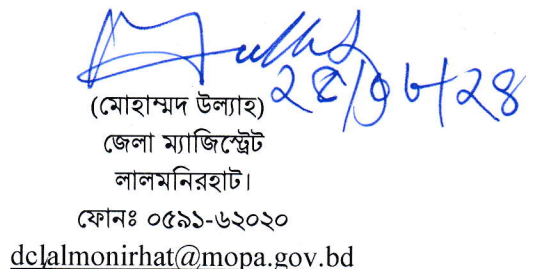 ২৫/০৮/২৪
(মোহাম্মদ উল্যাহ)
জেলা ম্যাজিস্ট্রেট
লালমনিরহাট।
ফোনঃ ০৫৯১-৬২০২০
dclalmonirhat@mopa.gov.bd